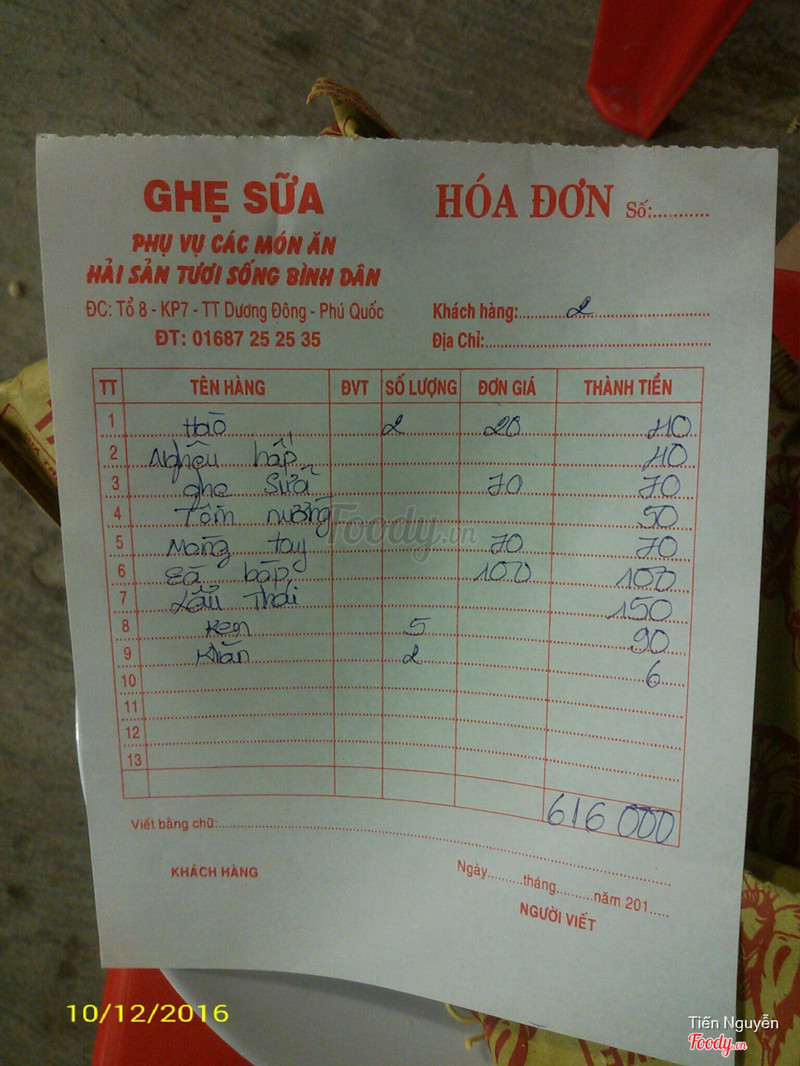 GHẸ SỮA
HÓA ĐƠN Số:...........
PHỤ VỤ CÁC MÓN ĂN
HẢI SẢN TƯƠI SỐNG BÌNH DÂN
ĐC: Tổ 8 - KP7 - TT Dương Đông - Phú Quốc
ĐT: 01687 25 25 35
Khách hàng:..........2..........
Địa Chỉ:....................
TT TÊN HÀNG ĐVT SỐ LƯỢNG ĐƠN GIÁ THÀNH TIỀN
1 Hào 2 20 40
2 Nghêu hấp 40
3 ghẹ Sữa 70 70
4 Tôm nướng 50
5 Mong tay 70 70
6 bắp 100 100
7 Lẩu Thái 150
8 Ken 5 90
9 Khăn 2 6
10
11
12
13
616 000
Viết bằng chữ:....................
KHÁCH HÀNG
Ngày.........tháng.........năm 201....
NGƯỜI VIẾT
Foody.vn
10/12/2016
Tiến Nguyễn
Foody.vn